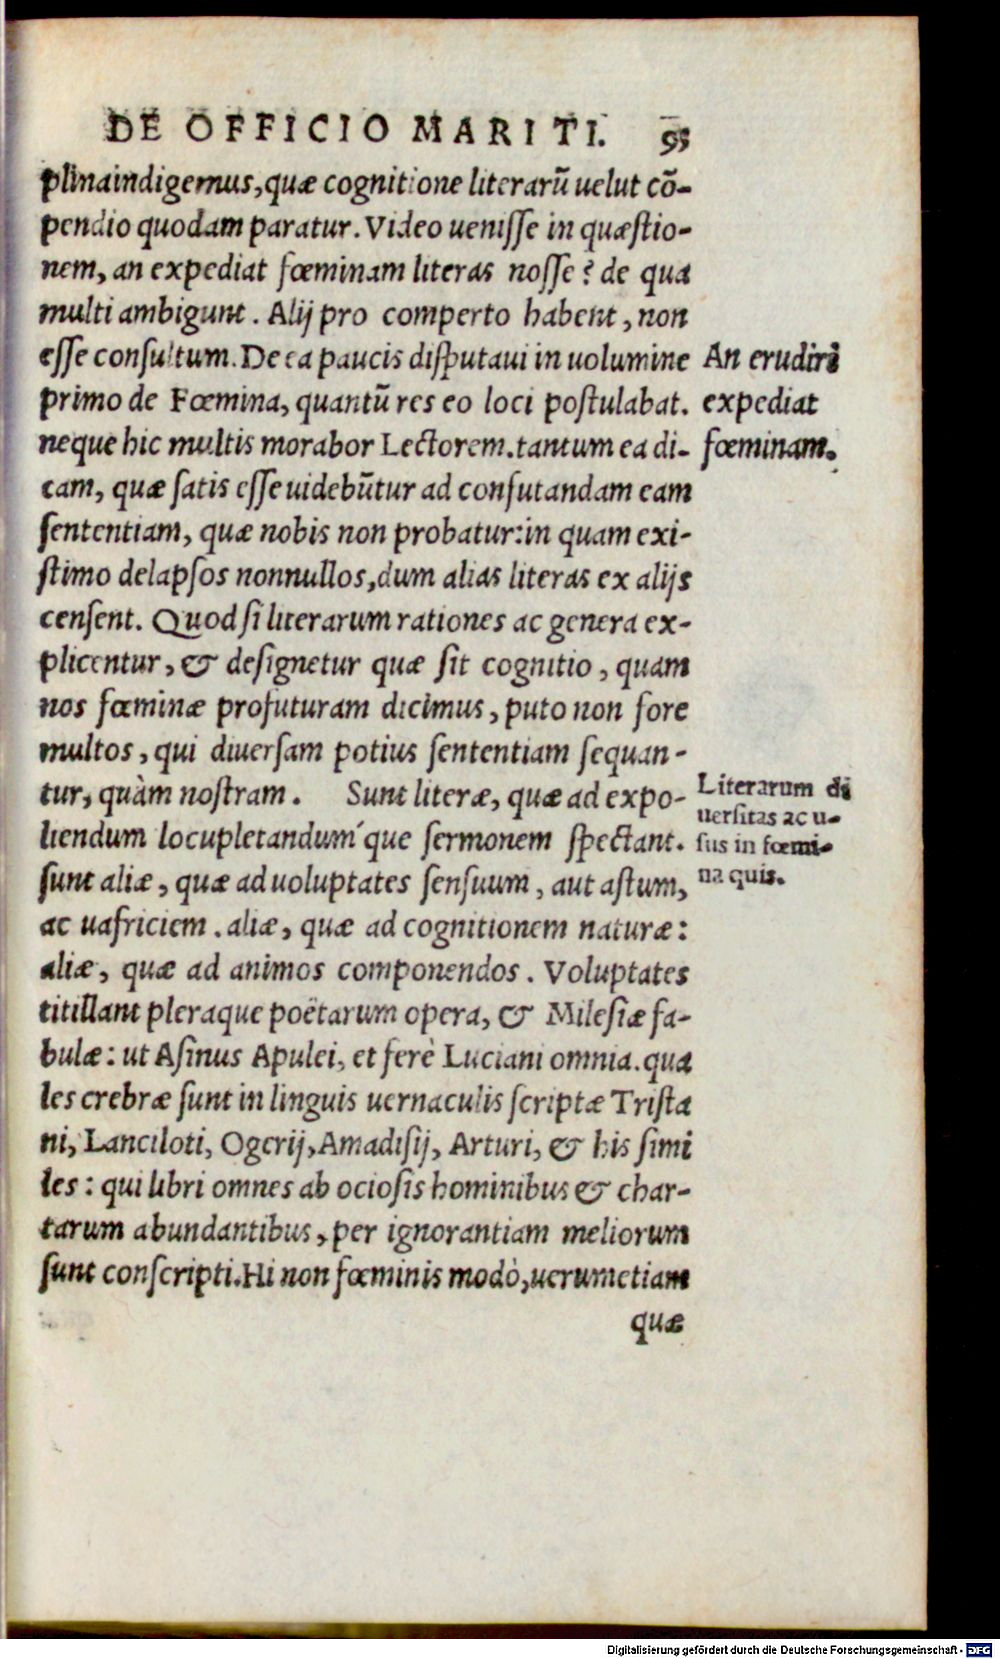 DE OFFICIO MARITI. 95
plinaindigemus, quæ cognitione literarũ uelut cõ-
pendio quodam paratur. Video uenisse in quæstio-
nem, an expediat fœminam literas nosse? de qua
multi ambigunt. Alij pro comperto habent, non
esse consultum. De ea paucis disputaui in uolumine
primo de Fœmina, quantũ res eo loci postulabat.
neque hic multis morabor Lectorem. tantum ea di-
cam, quæ satis esse uidebũtur ad confutandam eam
sententiam, quæ nobis non probatur: in quam exi-
stimo delapsos nonnullos, dum alias literas ex alijs
censent. Quod si literarum rationes ac genera ex-
plicentur, & designetur quæ sit cognitio, quam
nos fœminæ profuturam dicimus, puto non fore
multos, qui diuersam potius sententiam sequan-
tur, quàm nostram. Sunt literæ, quæ ad expo-
liendum locupletandum´que sermonem spectant.
sunt aliæ, quæ ad uoluptates sensuum, aut astum,
ac uafriciem. aliæ, quæ ad cognitionem naturæ:
aliæ, quæ ad animos componendos. Voluptates
titillant pleraque poëtarum opera, & Milesiæ fa-
bulæ: ut Asinus Apulei, et ferè Luciani omnia. qua
les crebræ sunt in linguis uernaculis scriptæ Trista
ni, Lanciloti, Ogerij, Amadisij, Arturi, & his simi
les: qui libri omnes ab ociosis hominibus & char-
tarum abundantibus, per ignorantiam meliorum
sunt conscripti. Hi non fœminis modò, uerumetiam
quæ
An erudiri
expediat
fœminam.
Literarum di
uersitas ac u-
sus in fœmi-
na quis.
Digitalisierung gefördert durch die Deutsche Forschungsgemeinschaft - DFG